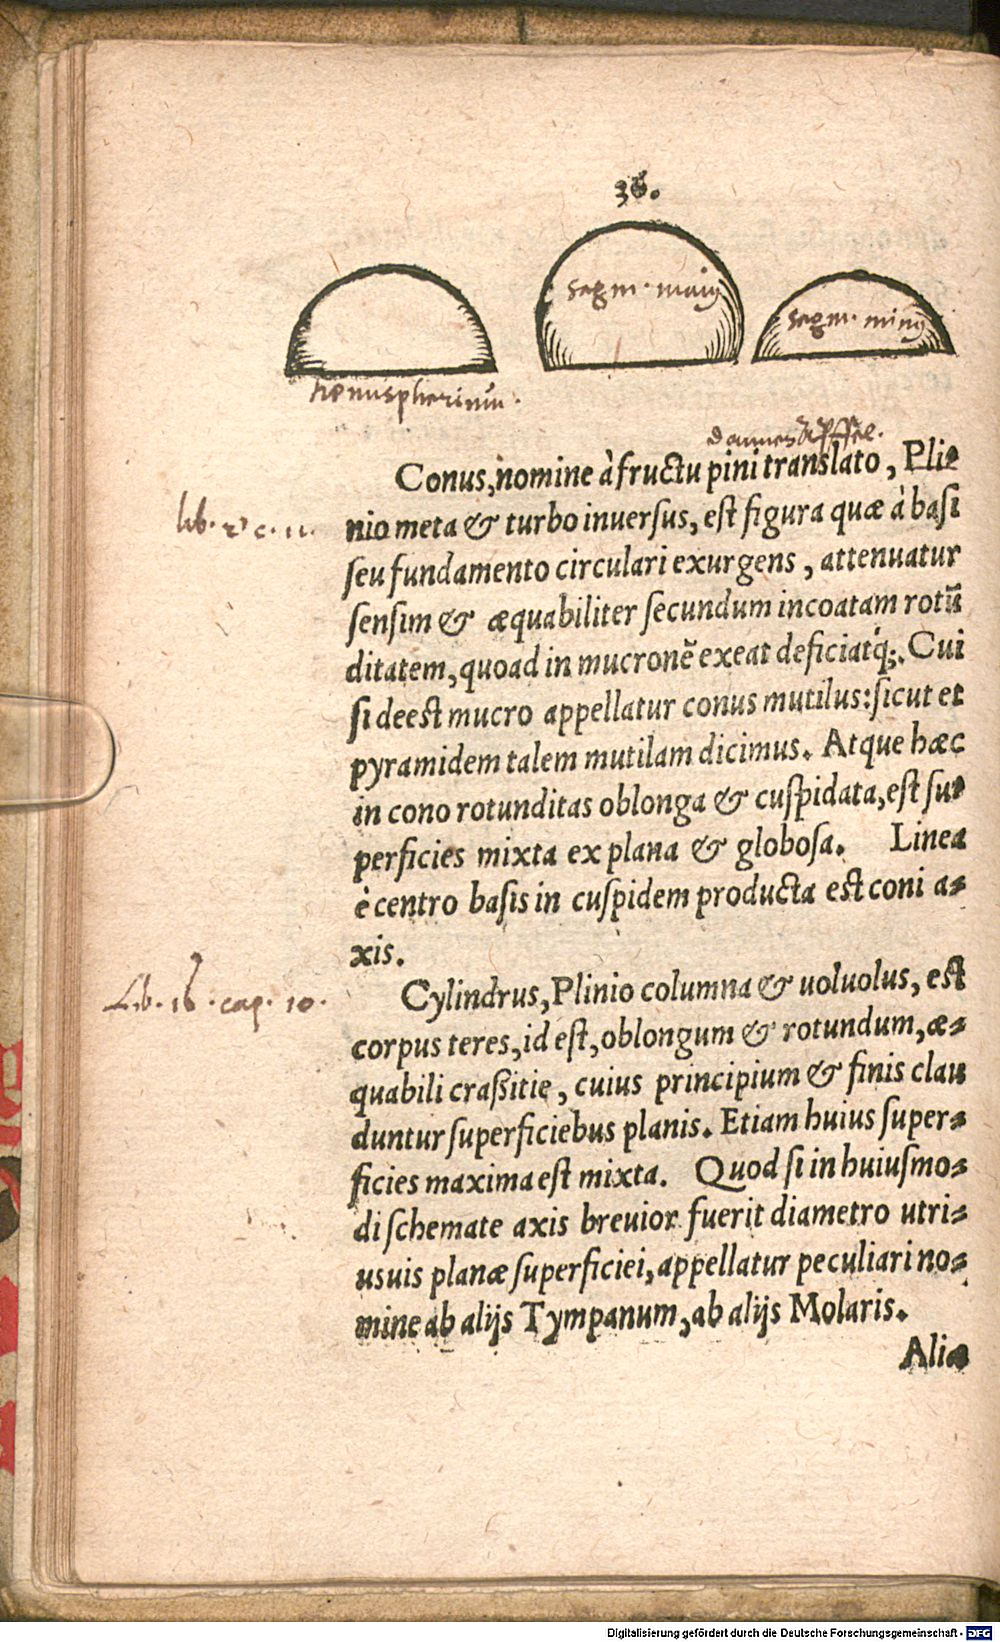 36.
segm. maiꝰ
segm. minꝰ
hemispherium.
dannezapffel.
Conus, nomine à fructu pini translato, Pli=
lib. 2 c. 11.
nio meta & turbo inuersus, est figura quæ à basi
seu fundamento circulari exurgens, attenuatur
sensim & æquabiliter secundum incoatam rotū
ditatem, quoad in mucronē exeat deficiatq́;. Cui
si deest mucro appellatur conus mutilus: sicut et
pyramidem talem mutilam dicimus. Atque hæc
in cono rotunditas oblonga & cuspidata, est su=
perficies mixta ex plana & globosa. Linea
è centro basis in cuspidem producta est coni a=
xis.
Lib. 16. cap. 10.
Cylindrus, Plinio columna & uoluolus, est
corpus teres, id est, oblongum & rotundum, æ=
quabili crassitie, cuius principium & finis clau
duntur superficiebus planis. Etiam huius super=
ficies maxima est mixta. Quod si in huiusmo=
di schemate axis breuior fuerit diametro utri=
usuis planæ superficiei, appellatur peculiari no=
mine ab alijs Tympanum, ab alijs Molaris.
Aliæ
Digitalisierung gefördert durch die Deutsche Forschungsgemeinschaft - DFG